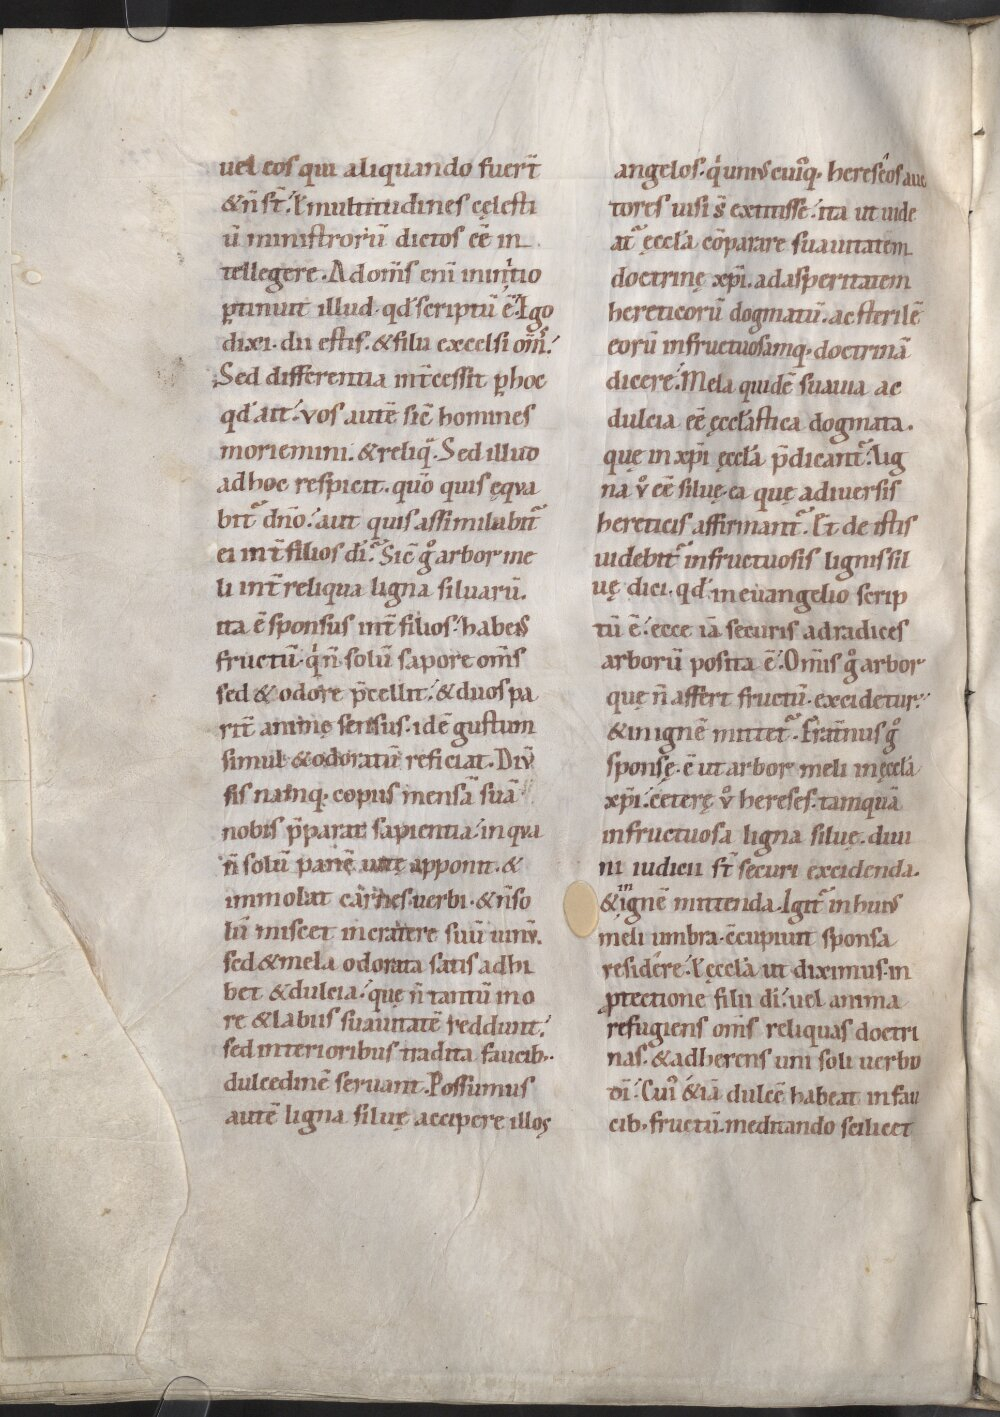 uel eos qui aliquando fuer̄t
&n̄ st̄. ł multitudines cęlesti
ū ministrorū dictos eē in
tellegere. Ad om̄s eni̅ initio
ꝑtinuit illud. qd̓ scriptū ē. Ego
dixi. dii estis. & filii excelsi om̄s.
Sed differentia int̄cessit ꝑ hoc
qd̓ ait. vos autē sic̄ homines
moriemini. & reliq̄. Sed illud
adhoc respicit. quō quis ęqua
bit᷑ dn̄o. aut quis assimilabit᷑
ei int̄ filios di̅. Sic̄ gͦ arbor me
li int̄ reliqua ligna siluarū.
ita ē sponsus int̄ filios. habens
fructū. qͥ n̄ solū sapore om̄s
sed & odore p̄cellit. & duos pa
rit̄ animę sensus. idē gustum
simul & odoratū reficiat. Diū
sis namq. copiis mensā suā
nobis p̄parat sapientia. in qua
n̄ solū panē uitę apponit. &
immolat carnes uerbi. & n̄ so
lū miscet in cratere suū uinū.
sed & mela odorata satis adhi
bet & dulcia. que n̄ tantū in o
re & labiis suauitatē reddunt.
sed interioribus tradita faucib.
dulcedinē seruant. Possumus
autē ligna siluę accipere illos
angelos. qͥ unius cuiq. hereseos auc
tores uisi s̄ extitisse. ita ut uide
at᷑ ęccl̓a cōparare suauitatem
doctrinę xp̄i. ad asperitatem
hereticorū dogmatū. ac sterilē
eorū infructuosamq. doctrinā
dicere. Mela quidē suauia ac
dulcia eē ęccl̓astica dogmata.
quę in xp̄i ęccl̓a p̄dicant᷑. Lig
na uͦ eē siluę. ea quę a diuersis
hereticis affirmant᷑. Et de istis
uidebit᷑ infructuosis lignis sil
uę dici. qd̓ in euangelio scrip
tū ē. ecce iā securis ad radices
arborū posita ē. Om̄is gͦ arbor
quę n̄ affert fructū. excidetur.
& in ignē mittet᷑. Frat̄nus gͦ
sponsę. ē ut arbor meli in ęccl̓a
xp̄i. ceterę uͦ hereses. tamquā
infructuosa ligna siluę. diui
ni iudicii st̄ securi excidenda.
& in ignē mittenda. Igit᷑ in huius
meli umbra. c̄cupiuit sponsa
residere. ł ęccl̓a ut diximus. in
ꝓtectione filii di̅. uel anima
refugiens om̄s reliquas doctri
nas. & adherens uni soli uerbo
di̅. Cuiͦ & iā dulcē habeat in fau
cib. fructū. meditando scilicet